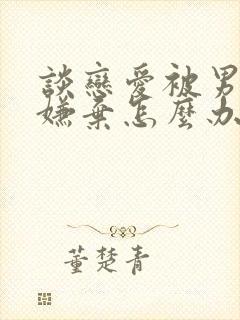 談戀愛被男
嫌棄怎麼办
董楚青